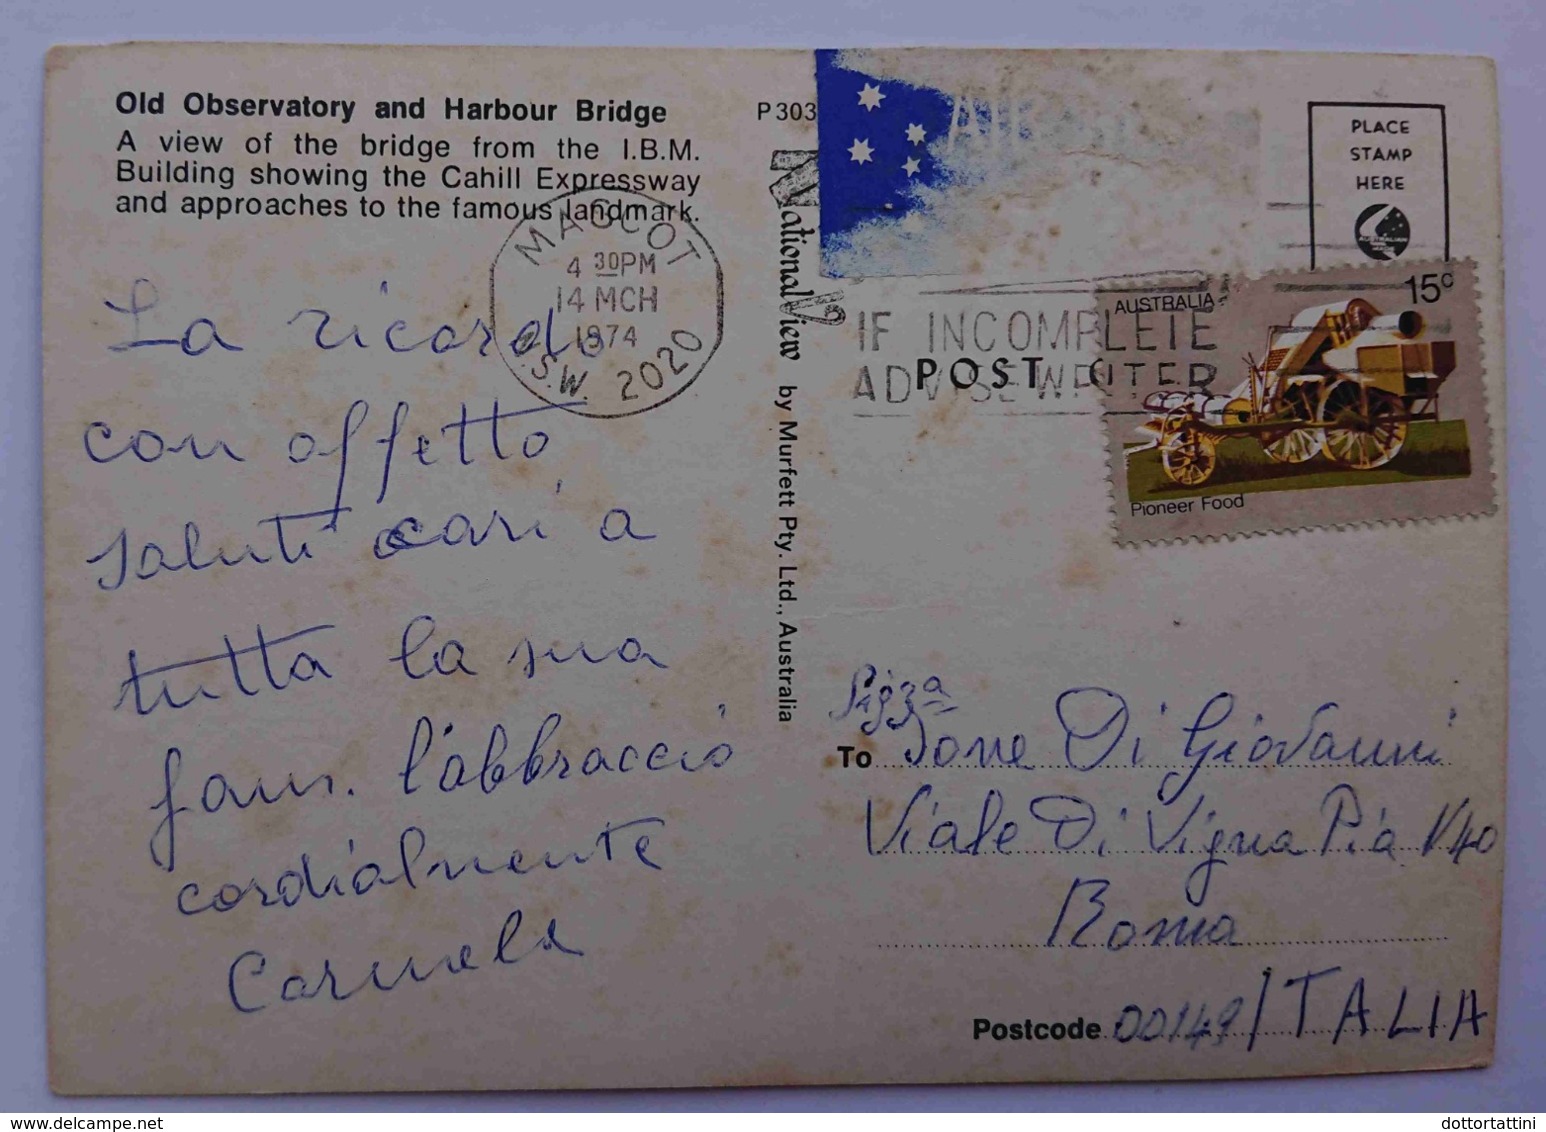 Old Observatory and Harbour Bridge
A view of the bridge from the I.B.M.
Building showing the Cahill Expressway
and approaches to the famous landmark.
P 303
MASCOT
4 30PM
14 MCH
1974
N.S.W. 2020
AIR
IF INCOMPLETE
ADVISE WRITER
POST
PLACE
STAMP
HERE
AUSTRALIA 15c
Pioneer Food
National View by Murfett Pty. Ltd., Australia
La ricordo
con affetto
saluti cari a
tutta la sua
fam. l'abbraccio
cordialmente
Carmela
To Done Di Giovanni
Viale Di Vigna Pia N40
Roma
Postcode 00149 ITALIA
dottortattini